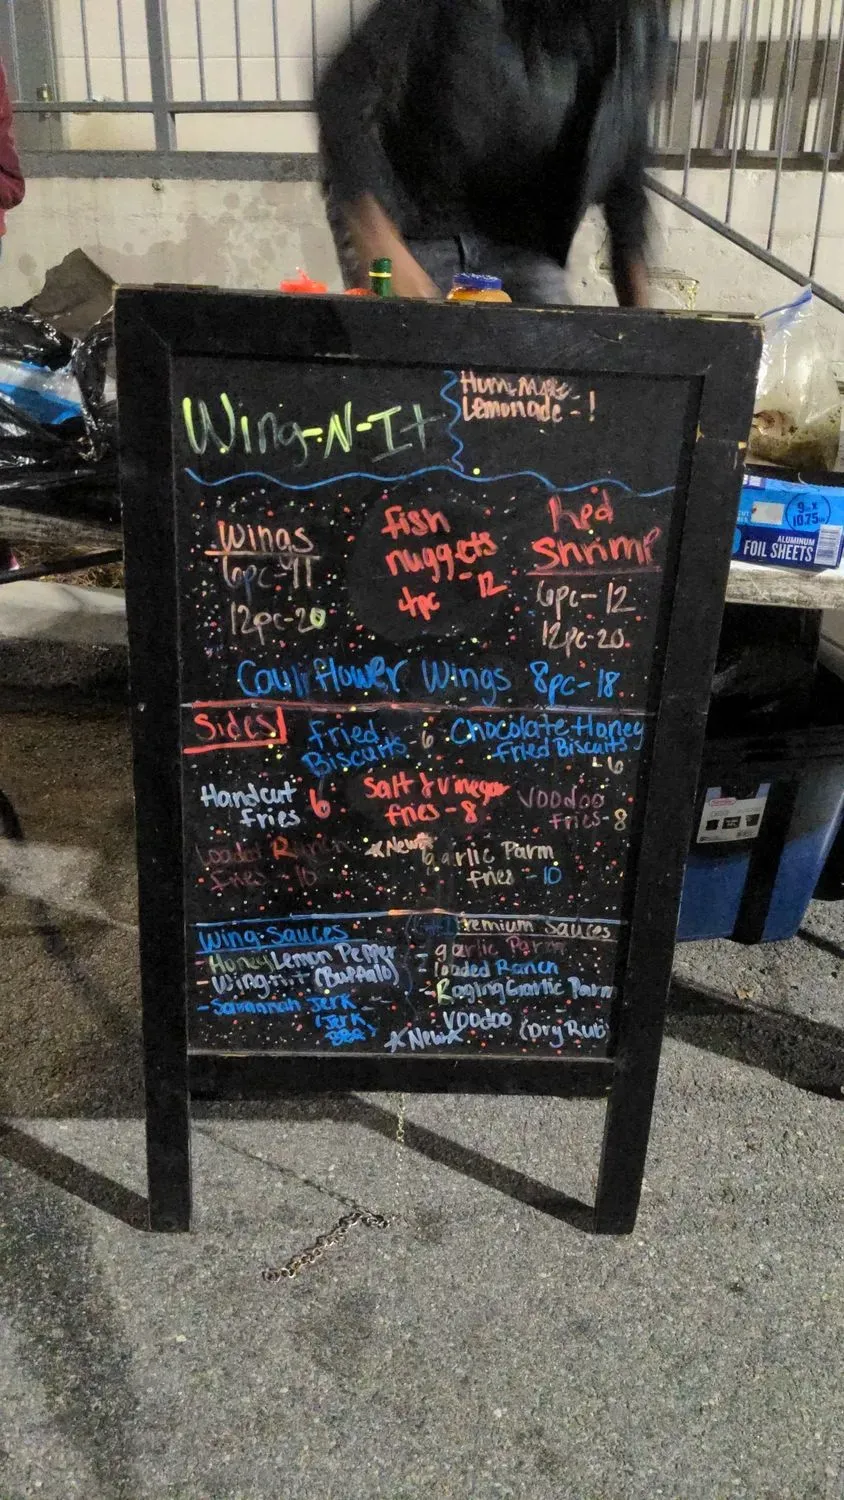 Wing-N-It
Lemonade - !
Wings
6pc-11
12pc-20
fish
nuggets
4pc - 12
Red
Shrimp
6pc-12
12pc-20
Cauliflower Wings 8pc-18
Sides
Fried
Biscuits - 6
Chocolate Honey
fried Biscuits
- 6
Handcut
fries 6
Salt & Vinegar
fries - 8
Voodoo
fries-8
Loaded Ranch
fries - 10
*New* garlic Parm
fries - 10
Wing Sauces
- Honey Lemon Pepper
- Wing-n-it (Buffalo)
- Savannah Jerk
(Jerk
BBQ)
Premium Sauces
- garlic Parm
- loaded Ranch
- Raging Garlic Parm
*New* Voodoo (Dry Rub)
9 IN x
10.75 in
ALUMINUM
FOIL SHEETS